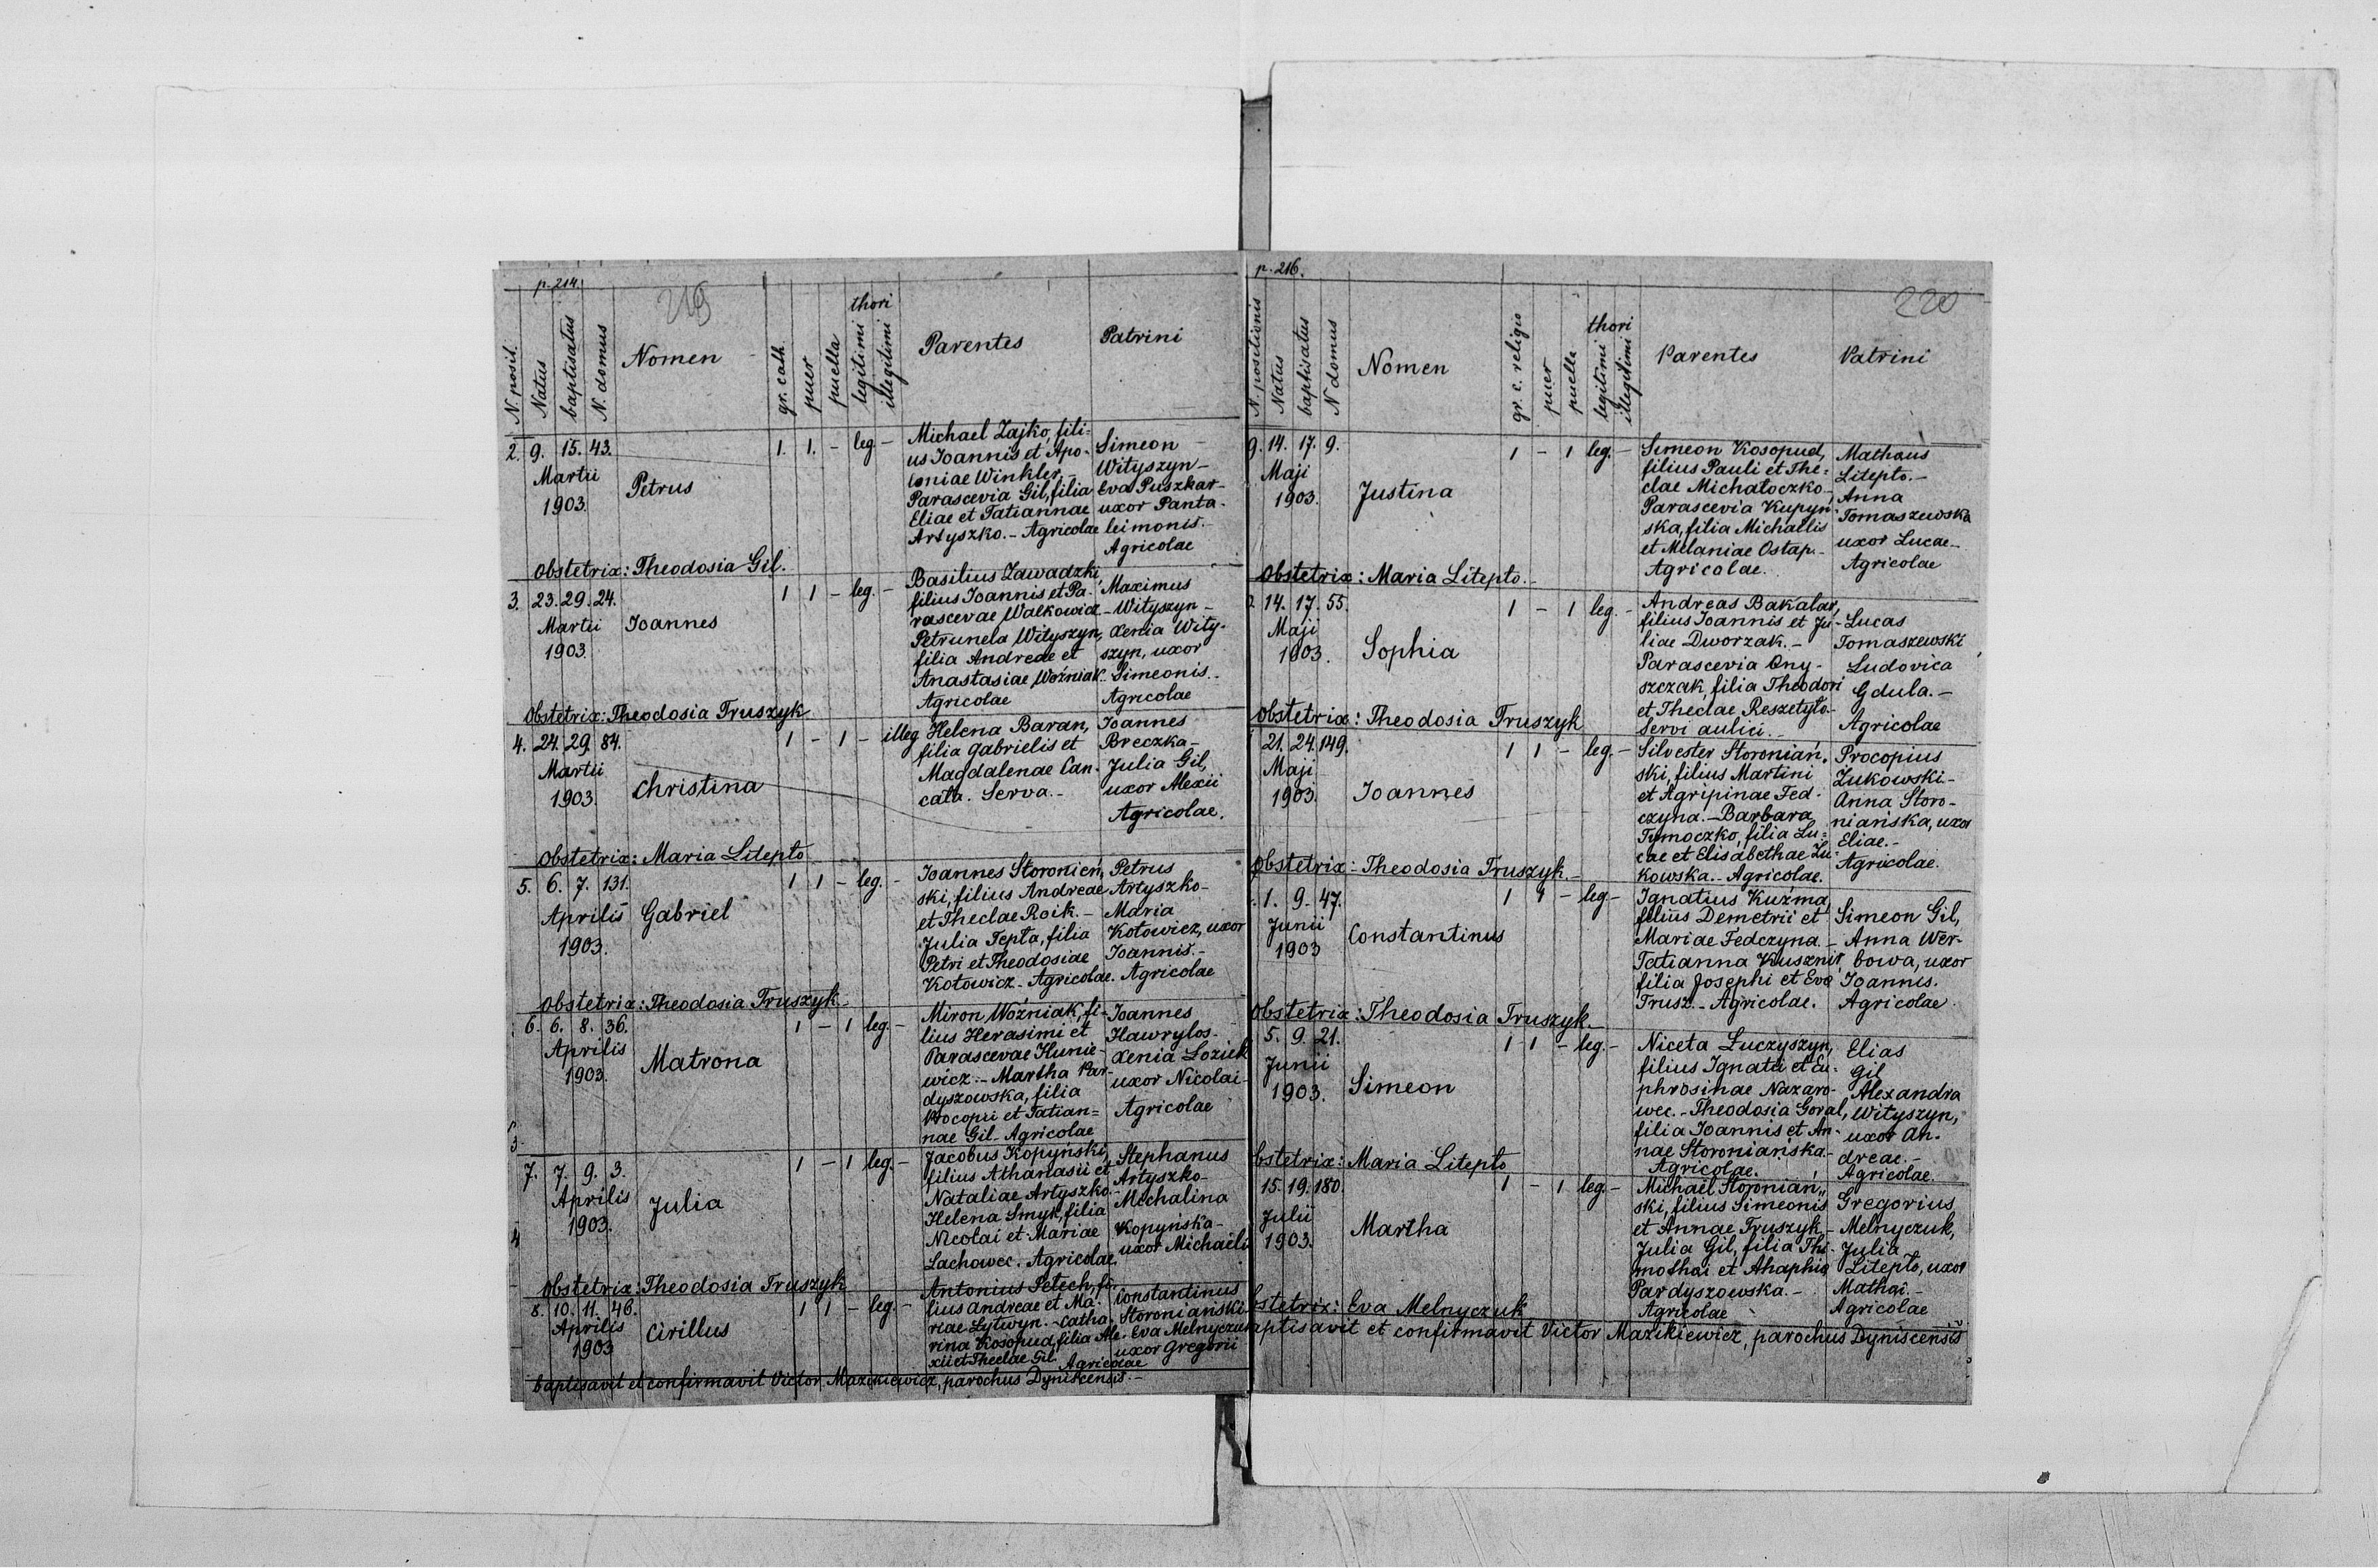 p. 214.
219
N. posit.
Natus
baptisatus
N. domus
Nomen
gr. cath.
puer
puella
thori
legitimi
illegitimi
Parentes
Patrini
2. 9. 15. 43.
Martii
1903.
Petrus
1. 1. - leg. -
Michael Zajko, fili=
us Joannis et Apo-
loniae Winkler. -
Parascevia Gil, filia
Eliae et Tatiannae
Artyszko. - Agricolae
Simeon
Wityszyn -
Eva Puszkar -
uxor Panta-
leimonis. -
Agricolae
Obstetrix: Theodosia Gil.
3. 23. 29. 24.
Martii
1903.
Joannes
1 1 - leg. -
Basilius Zawadzki,
filius Joannis et Pa-
rascevae Walkowicz. -
Petrunela Wityszyn,
filia Andreae et
Anastasiae Woźniak.
Agricolae
Maximus
Wityszyn -
Xenia Wity-
szyn, uxor
Simeonis. -
Agricolae
Obstetrix: Theodosia Truszyk
4. 24. 29. 84.
Martii
1903.
Christina
1 - 1 - illeg
Helena Baran,
filia Gabrielis et
Magdalenae Can-
cala. Serva. -
Joannes
Breczka -
Julia Gil,
uxor Alexii
Agricolae.
Obstetrix: Maria Litepło
5. 6. 7. 131.
Aprilis
1903.
Gabriel
1 1 - leg. -
Joannes Storonień,
ski, filius Andreae
et Theclae Roik. -
Julia Tepła, filia
Petri et Theodosiae
Kotowicz - Agricolae.
Petrus
Artyszko -
Maria
Kotowicz, uxor
Joannis. -
Agricolae
Obstetrix: Theodosia Truszyk -
6. 6. 8. 36.
Aprilis
1903.
Matrona
1 - 1 leg. -
Miron Woźniak, fi-
lius Herasimi et
Parascevae Hunie-
wicz. - Martha Par-
dyszowska, filia
Procopii et Tatian=
nae Gil - Agricolae
Joannes
Hawrylos -
Xenia Łoziuk
uxor Nicolai -
Agricolae
7. 7. 9. 3.
Aprilis
1903.
Julia
1 - 1 leg. -
Jacobus Kopyński,
filius Athanasii et
Nataliae Artyszko -
Helena Smyk, filia
Nicolai et Mariae
Lachowec. Agricolae.
Stephanus
Artyszko -
Michalina
Kopyńska -
uxor Michaelis
Obstetrix: Theodosia Truszyk
8. 10. 11. 46.
Aprilis
1903
Cirillus
1 1 - leg. -
Antonius Petech, fi-
lius Andreae et Ma-
riae Lytwyn. - Catha-
rina Kosopud, filia Ale-
xii et Theclae Gil.
Agricolae
Constantinus
Storoniański
Eva Melnyczuk
uxor Gregorii
baptisavit et confirmavit Victor Mazikiewicz, parochus Dyniscensis. -
p. 216.
220
N. positionis
Natus
baptisatus
N domus
Nomen
gr. c. religio
puer
puella
thori
legitimi
illegitimi
Parentes
Patrini
9. 14. 17. 9.
Maji
1903.
Justina
1 - 1 leg. -
Simeon Kosopud,
filius Pauli et The=
clae Michałoczko -
Parascevia Kupyn-
ska, filia Michaelis
et Melaniae Ostap. -
Agricolae.
Mathaus
Litepło. -
Anna
Tomaszewska
uxor Lucae -
Agricolae
Obstetrix: Maria Litepło. -
14. 17. 55.
Maji
1903.
Sophia
1 - 1 leg. -
Andreas Bakalar,
filius Joannis et Ju-
liae Dworzak. -
Parascevia Ony-
szczak, filia Theodori
et Theclae Reszetyło -
Servi aulici. -
Lucas
Tomaszewski
Ludovica
Gdula. -
Agricolae
Obstetrix: Theodosia Truszyk
21. 24. 149.
Maji
1903.
Joannes
1 1 - leg. -
Silvester Storoniań,
ski, filius Martini
et Agripinae Fed-
czyna. - Barbara
Tymoczko, filia Lu=
cae et Elisabethae Żu-
kowska. - Agricolae.
Procopius
Żukowski -
Anna Storo-
niańska, uxor
Eliae. -
Agricolae.
Obstetrix - Theodosia Truszyk. -
1. 9. 47.
Junii
1903
Constantinus
1 1 - leg. -
Ignatius Kuźma,
filius Demetrii et
Mariae Fedczyna. -
Tatianna Kusznir,
filia Josephi et Eva
Trusz. - Agricolae.
Simeon Gil,
Anna Wer-
bowa, uxor
Joannis.
Agricolae
Obstetrix: Theodosia Truszyk. -
5. 9. 21.
Junii
1903.
Simeon
1 1 - leg. -
Niceta Łuczyszyn,
filius Ignatii et Eu-
phrosinae Nazaro-
wec. - Theodosia Goral,
filia Joannis et An-
nae Storoniańska. -
Agricolae.
Elias
Gil
Alexandra
Wityszyn,
uxor An-
dreae. -
Agricolae.
bstetrix: Maria Litepło
15. 19. 180.
Julii
1903.
Martha
1 - 1 leg. -
Michael Storoniań,,
ski, filius Simeonis
et Annae Truszyk -
Julia Gil, filia Thi-
mothai et Ahaphia
Pardyszowska. -
Agricolae
Gregorius
Melnyczuk,
Julia
Litepło, uxor
Mathai. -
Agricolae
bstetrix: Eva Melnyczuk
aptisavit et confirmavit Victor Mazikiewicz, parochus Dyniscensis